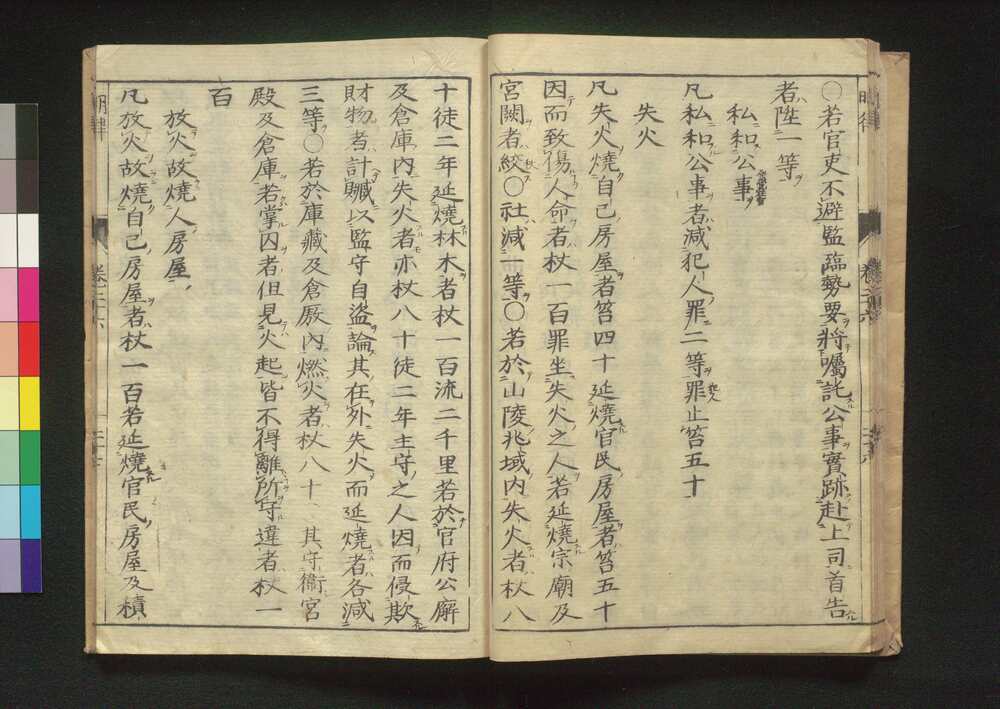 〇若官吏不避監臨勢要將囑託公事實跡赴上司首告
者陞一等
私和公事
凡私和公事者減犯人罪二等罪止笞五十
失火
凡失火燒自己房屋者笞四十延燒官民房屋者笞五十
因而致傷人命者杖一百罪坐失火之人若延燒宗廟及
宮闕者絞〇社減一等〇若於山陵兆域内失火者杖八
十徒二年延燒林木者杖一百流二千里若於官府公廨
及倉庫内失火者亦杖八十徒二年主守之人因而侵欺
財物者計贓以監守自盗論其在外失火而延燒者各減
三等〇若於庫藏及倉厫内燃火者杖八十、其守衞宮
殿及倉庫若掌囚者但見火起皆不得離所守違者杖一
百
放火故燒人房屋
凡放火故燒自己房屋者杖一百若延燒官民房屋及積
明律
卷二十六